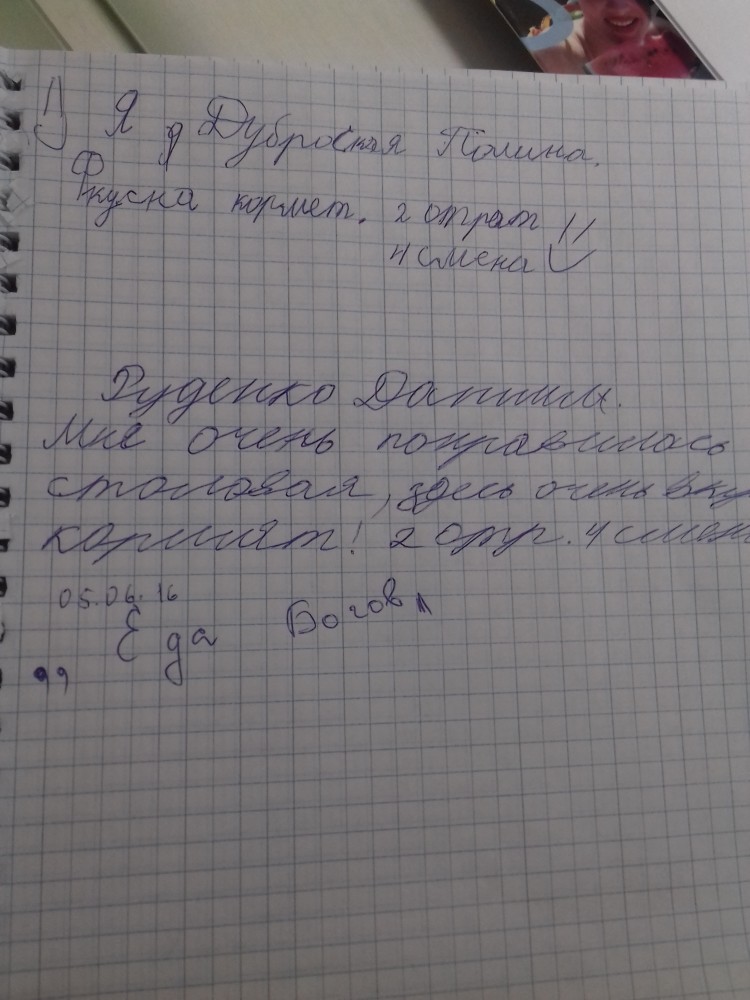 Я Дубровская Полина.
Фкусна кормет. 2 отрат !!
4 смена
Руденко Даниил.
Мне очень понравилось
столовая, здесь очень вку
кормят! 2 отр. 4 смен
05.06.16
Еда Богов
99